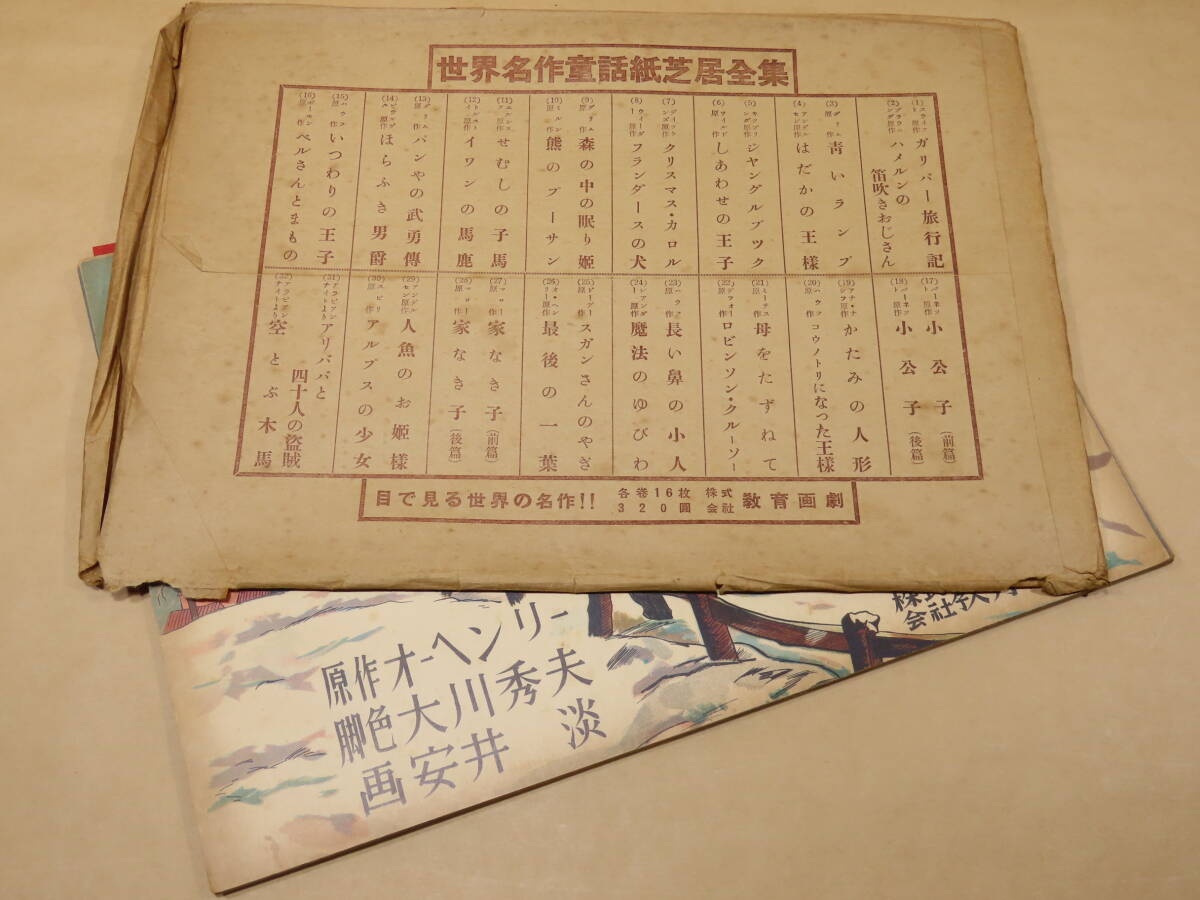 世界名作童話紙芝居全集
(1) スウイフト原作 ガリバー旅行記
(2) ブラウニング原作 ハメルンの笛吹きおじさん
(3) グリム原作 青いランプ
(4) アンデルセン原作 はだかの王様
(5) キップリング原作 ジヤングルブツク
(6) ワイルド原作 しあわせの王子
(7) デイツケンズ原作 クリスマス・カロル
(8) ウイーダ原作 フランダースの犬
(9) グリム原作 森の中の眠り姫
(10) ミルン原作 熊のプーサン
(11) エルシヨフ原作 せむしの子馬
(12) トルストイ原作 イワンの馬鹿
(13) グリム原作 パンやの武勇傳
(14) ビウルゲル原作 ほらふき男爵
(15) ハウフ原作 いつわりの王子
(16) ボーモン原作 ベルさんとまもの
(17) バーネット原作 小公子(前篇)
(18) バーネット原作 小公子(後篇)
(19) かたみの人形
(20) ハウフ原作 コウノトリになった王様
(21) 母をたずねて
(22) デフォー原作 ロビンソン・クルーソー
(23) ハウフ原作 長い鼻の小人
(24) 魔法のゆびわ
(25) ドーデー原作 スガンさんのやぎ
(26) オー・ヘンリー原作 最後の一葉
(27) マロー原作 家なき子(前篇)
(28) マロー原作 家なき子(後篇)
(29) アンデルセン原作 人魚のお姫様
(30) スピリ原作 アルプスの少女
(31) アラビアンナイトより アリババと四十人の盗賊
(32) アラビアンナイトより 空とぶ木馬
目で見る世界の名作!! 各巻16枚 320圓 株式会社 教育画劇
原作オーヘンリー
脚色大川秀夫
画安井 淡
株式
会社教育